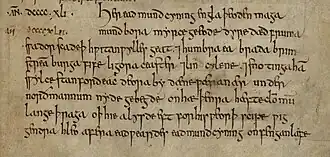 AN̄. dcccc.xli. Her eadmund cyning engla þeoden maga
AN̄. dccccxlii. mund bora myrce geeode dyre dæd fruma
swa dor scadeþ hwitan wylles geat. ⁊ humbra ea brada brim
stream burga fife ligora ceaster ⁊ lin cylene. ⁊ snotinga ham
swylce stanford eac ⁊ deora by dæne wæran ær under
norð mannum nyde gebegde on hæþenra hæfte clommum
lange þraga oþ hie alysde eft for his weorþ scipe wig
gendra hleo afera eadweardes eadmund cyning onfeng anlafe